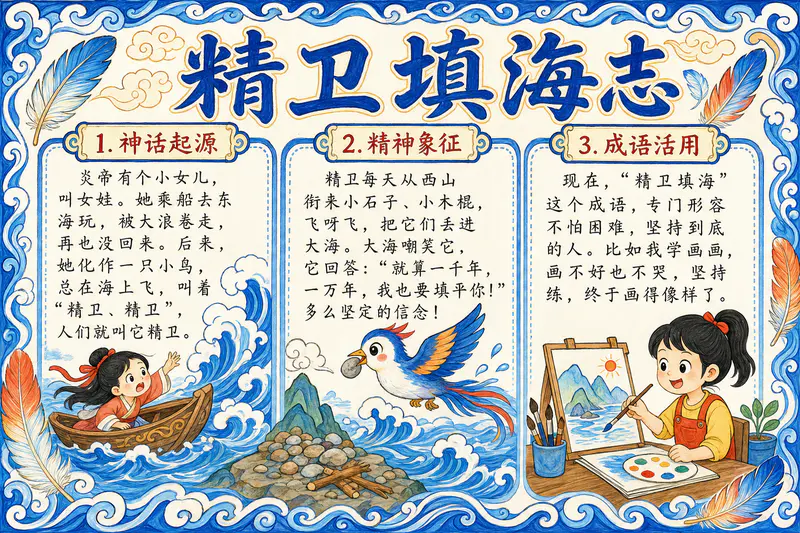 精卫填海志
1. 神话起源
炎帝有个小女儿，
叫女娃。她乘船去东
海玩，被大浪卷走，
再也没回来。后来，
她化作一只小鸟，
总在海上飞，叫着
“精卫、精卫”，
人们就叫它精卫。
2. 精神象征
精卫每天从西山
衔来小石子、小木棍，
飞呀飞，把它们丢进
大海。大海嘲笑它，
它回答：“就算一千年，
一万年，我也要填平你！”
多么坚定的信念！
3. 成语活用
现在，“精卫填海”
这个成语，专门形容
不怕困难，坚持到底
的人。比如我学画画，
画不好也不哭，坚持
练，终于画得像样了。